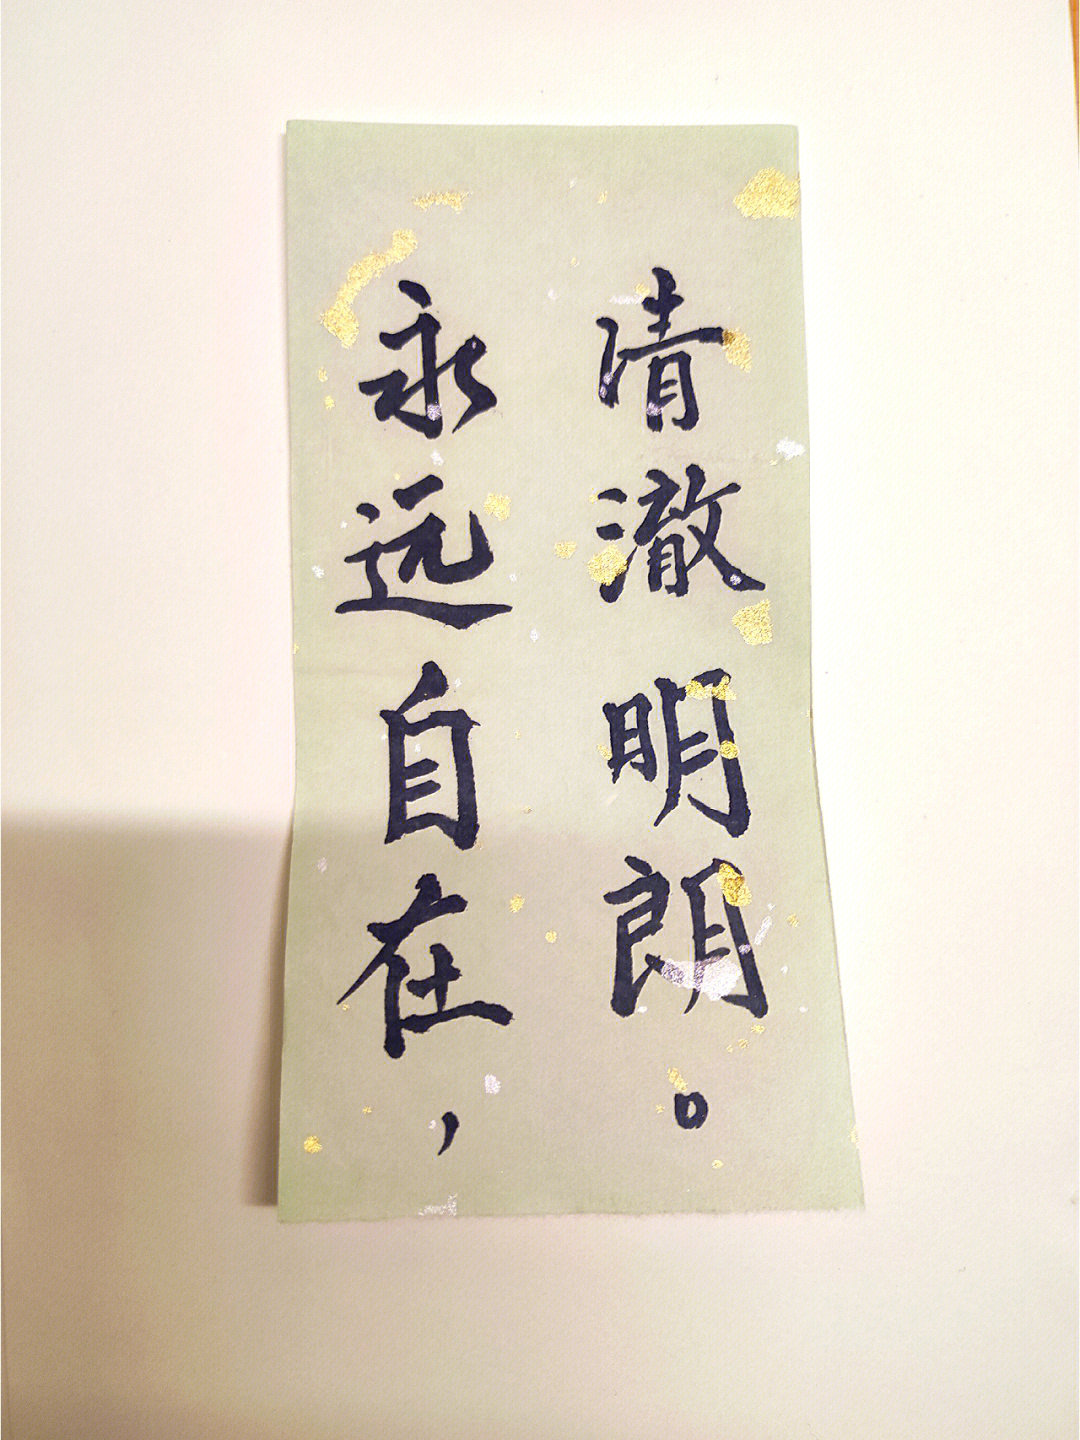 永远自在，
清澈明朗。